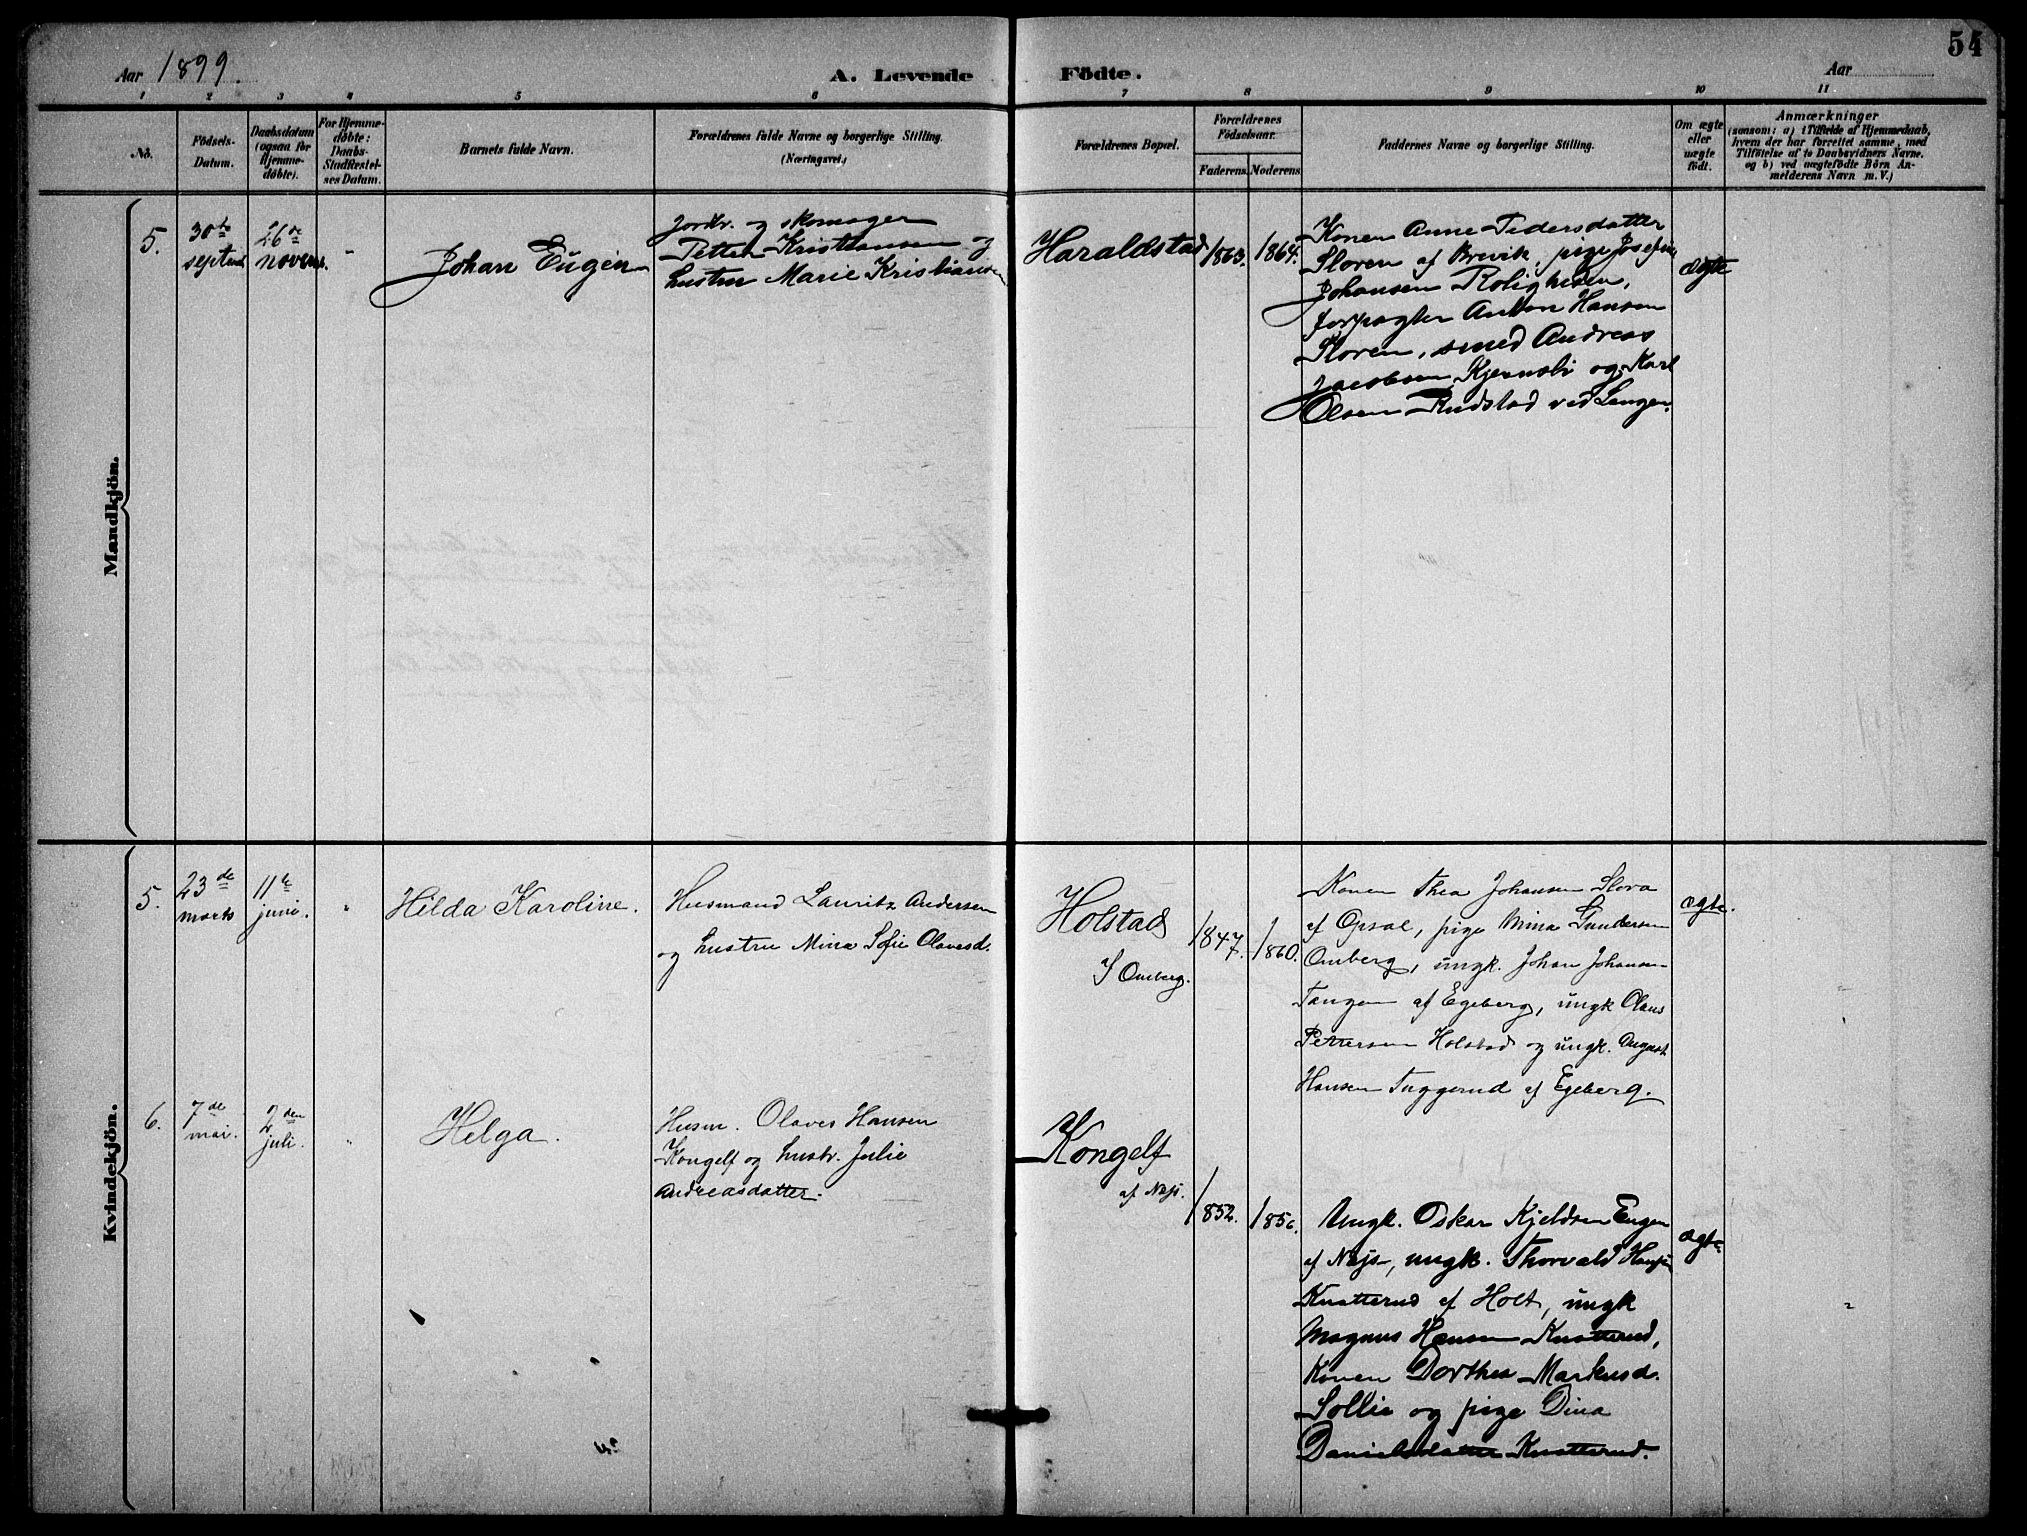 54
Aar 1899.
A. Levende Födte.
Aar
1 2 3 4 5 6 7 8 9 10 11
No.
Födsels-
Datum.
Daabsdatum
(ogsaa for
Hjemme-
döbte).
For Hjemme-
döbte:
Daabs-
Stadfæstel-
ses Datum.
Barnets fulde Navn.
Forældrenes fulde Navne og borgerlige Stilling.
(Næringsvei.)
Forældrenes Bopæl.
Forældrenes
Födselsaar.
Faderens. Moderens.
Faddernes Navne og borgerlige Stilling.
Om ægte
eller
uægte
födt.
Anmærkninger
(saasom: a) i Tilfælde af Hjemmedaab,
hvem der har forrettet samme, med
Tilföielse af to Daabsvidners Navne,
og b) ved uægtefödte Börn An-
melderens Navn m. V.)
Mandkjön.
5.
30te
septemb.
26de
novemb.
"
Johan Eugen
Jordbr. og skomager
Petter Kristiansen og
hustru Marie Kristiansen
Haraldstad
1863.
1864.
Konen Anne Pedersdatter
Sloren af Brevik, pige Josefine
Johansen Rolighesen,
forpagter Anton Hansen
Sloren, smed Andreas
Jacobsen Kjernsli og Karl
Olsen Rudstad ved Langen.
ægte
Kvindekjön.
5.
23de
marts
11te
juni.
"
Hilda Karoline.
Husmand Lauritz Andersen
og hustru Mina Sofie Olavesd.
Holstad
/ Omberg.
1847.
1860.
Konen Thea Johansen Slora
af Opsal, pige Mina Gundersen
Omberg, ungk. Johan Johansen
Tangen af Egeberg, ungk Olaus
Pettersen Holstad og ungk. August
Hansen Tuggerud af Egeberg.
ægte.
"
6.
7de
mai.
2den
juli.
"
Helga.
Husm. Olaves Hansen
Kongelf og hustr. Julie
Andreasdatter.
Kongelf
af Nøjs.
1852.
Ungk. Oskar Kjeldsen Engen
af Nøjs, ungk. Thorvald Hansen
Knatterud af Holt, ungk
Magnus Hansen Knatterud,
Konen Dorthea Markusd.
Sollie og pige Dina
Danielsdatter Knatterud.
ægte.
"